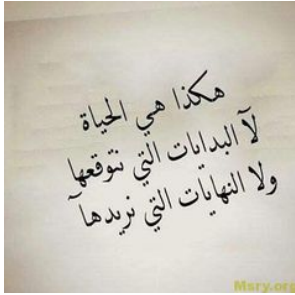 هكذا هي الحياة
لآ البدايات التي نتوقعها
ولا النهايات التي نريدهآ
Msry.org